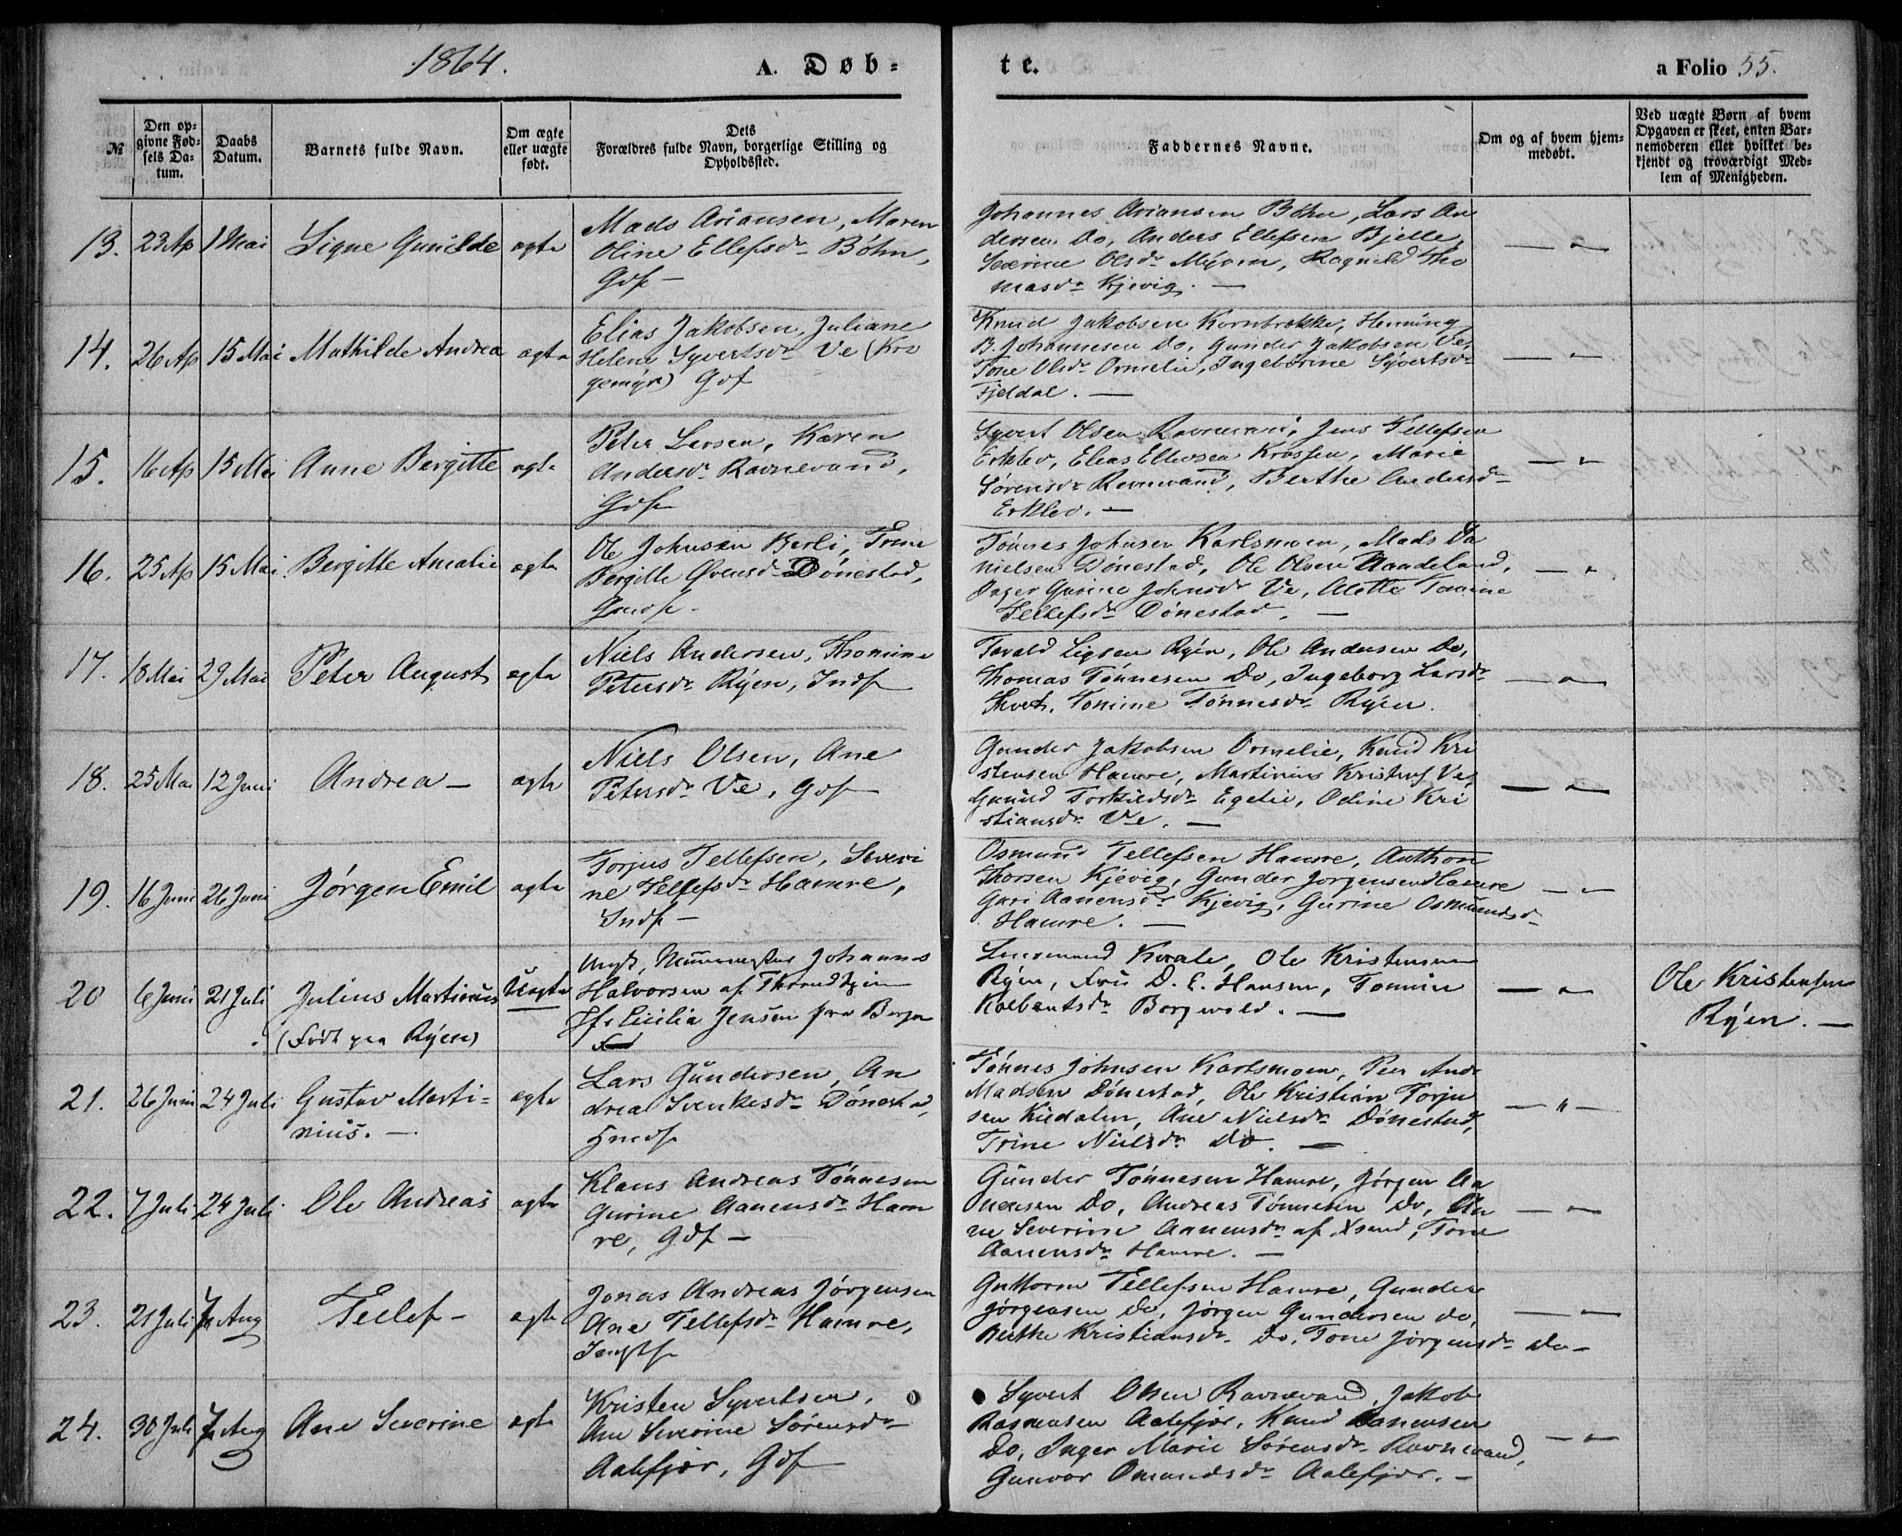 1864.
A. Døb-
te.
a Folio 55.
№
Den op-
givne Fød-
sels Da-
tum.
Daabs
Datum.
Barnets fulde Navn.
Om ægte
eller uægte
født.
Dets
Forældres fulde Navn, borgerlige Stilling og
Opholdssted.
Faddernes Navne.
Om og af hvem hjem-
medøbt.
Ved uægte Børn af hvem
Opgaven er skeet, enten Bar-
nemoderen eller hvilket be-
kjendt og troværdigt Med-
lem af Menigheden.
13. 23 Ap 1 Mai Signe Gunilde ægte
Mads Ariansen, Maren
Oline Ellefsdr Bøhn,
Gdf
Johannes Ariansen Bøhn, Lars An
dersen Do, Anders Ellefsen Bjelle,
Severine Olsdr Myren, Ragnild Tho
masdr Kjevig. —
— " —
14. 26 Ap 15 Mai Mathilde Andrea ægte
Elias Jakobsen, Juliane
Helene Syvertsdr Ve (Kro
gemyr) Gdf
Knud Jakobsen Kornbrække, Henning
B. Johannesen Do, Gunder Jakobsen Ve,
Tone Olsdr Ormelie, Ingeborine Syvertsdr
Fjeldal. —
— " —
15. 16 Ap 15 Mai Anne Bergitte ægte
Peter Larsen, Karen
Andersdr Ravnevand,
Gdf
Syvert Olsen Ravnevand, Jens Tellefsen
Erklev, Elias Ellevsen Krossen, Marie
Sørensdr Ravnevand, Berthe Andersdr
Erklev. —
— " —
16. 25 Ap 15 Mai Bergitte Amalie ægte
Ole Johnsen Berli, Trine
Bergitte Svensdr Dønestad,
Gmdf
Tønnes Johnsen Karlsmoen, Mads Da
nielsen Dønestad, Ole Olsen Aandeland,
Inger Gurine Johnsdr Ve, Alette Tomine
Tellefsdr Dønestad. —
— " —
17. 18 Mai 29 Mai Peter August ægte
Niels Andersen, Thomine
Petersdr Ryen, Indf
Tarald Ryen, Ole Andersen Do,
Thomas Tønnesen Do, Ingeborg Larsdr
Tomine Tønnesdr Ryen.
— " —
18. 25 Mai 12 Juni Andrea — ægte
Niels Olsen, Ane
Petersdr Ve, Gdf
Gunder Jakobsen Ormelie, Knud Kri
stensen Hamre, Martinius Kristens Ve,
Gunild Torkildsdr Egelie, Odine Kri
stiansdr Ve. —
— " —
19. 16 Juni 26 Juni Jørgen Emil ægte
Torjus Tellefsen, Severi
ne Tellefsdr Hamre,
Indf —
Osmund Tellefsen Hamre, Anthon
Thorsen Kjevig, Gunder Jørgensen Hamre
Guri Aanensdr Kjevig, Gurine Osmundsdr
Hamre. —
— " —
20 6 Juni 21 Juli Julius Martinius Uægte
(Født paa Ryen)
Ungk. Muurmester Johannes
Halvorsen af Throndhjem
Cicilia Jensen fra Bergen
Lensmand Kvale, Ole Kristensen
Ryen, Fru D. E. Hansen, Tomine
Kalbentsdr Borgevold. —
— " —
Ole Kristensen
Ryen. —
21. 26 Juni 24 Juli Gustav Marti-
nius. — ægte
Lars Gundersen, An
drea Svenkesdr Dønestad,
Gmdf
Tønnes Johnsen Karlsmoen, Peer And
Madsen Dønestad, Ole Kristian Torju
sen Kiedalen, Ane Nielsdr Dønestad,
Trine Nielsdr Do. —
— " —
22. 7 Juli 24 Juli Ole Andreas ægte
Klaus Andreas Tønnesen
Gurine Aanensdr Ham
re, Gdf —
Gunder Tønnesen Hamre, Jørgen Aa
nensen Do, Andreas Tønnesen Do, An
ne Severine Aanensdr af Xsand, Tone
Aanensdr Hamre. —
— " —
23. 21 Juli 7 Aug Tellef — ægte
Jonas Andreas Jørgensen
Ane Tellefsdr Hamre,
Guttorm Tellefsen Hamre, Gunder
Jørgensen Do, Jørgen Gundersen do,
Berthe Kristiansdr Do, Tone Jørgensdr Do —
— " —
24. 30 Juli 7 Aug Ane Severine ægte
Kristen Syvertsen,
Ane Severine Sørensdr
Aalefjær, Gdf
Syvert Olsen Ravnevand, Jakob
Rasmusen Aalefjær, Knud Aanensen
Do, Inger Marie Sørensdr Ravnevand,
Gunvor Omundsdr Aalefjær. —
— " —